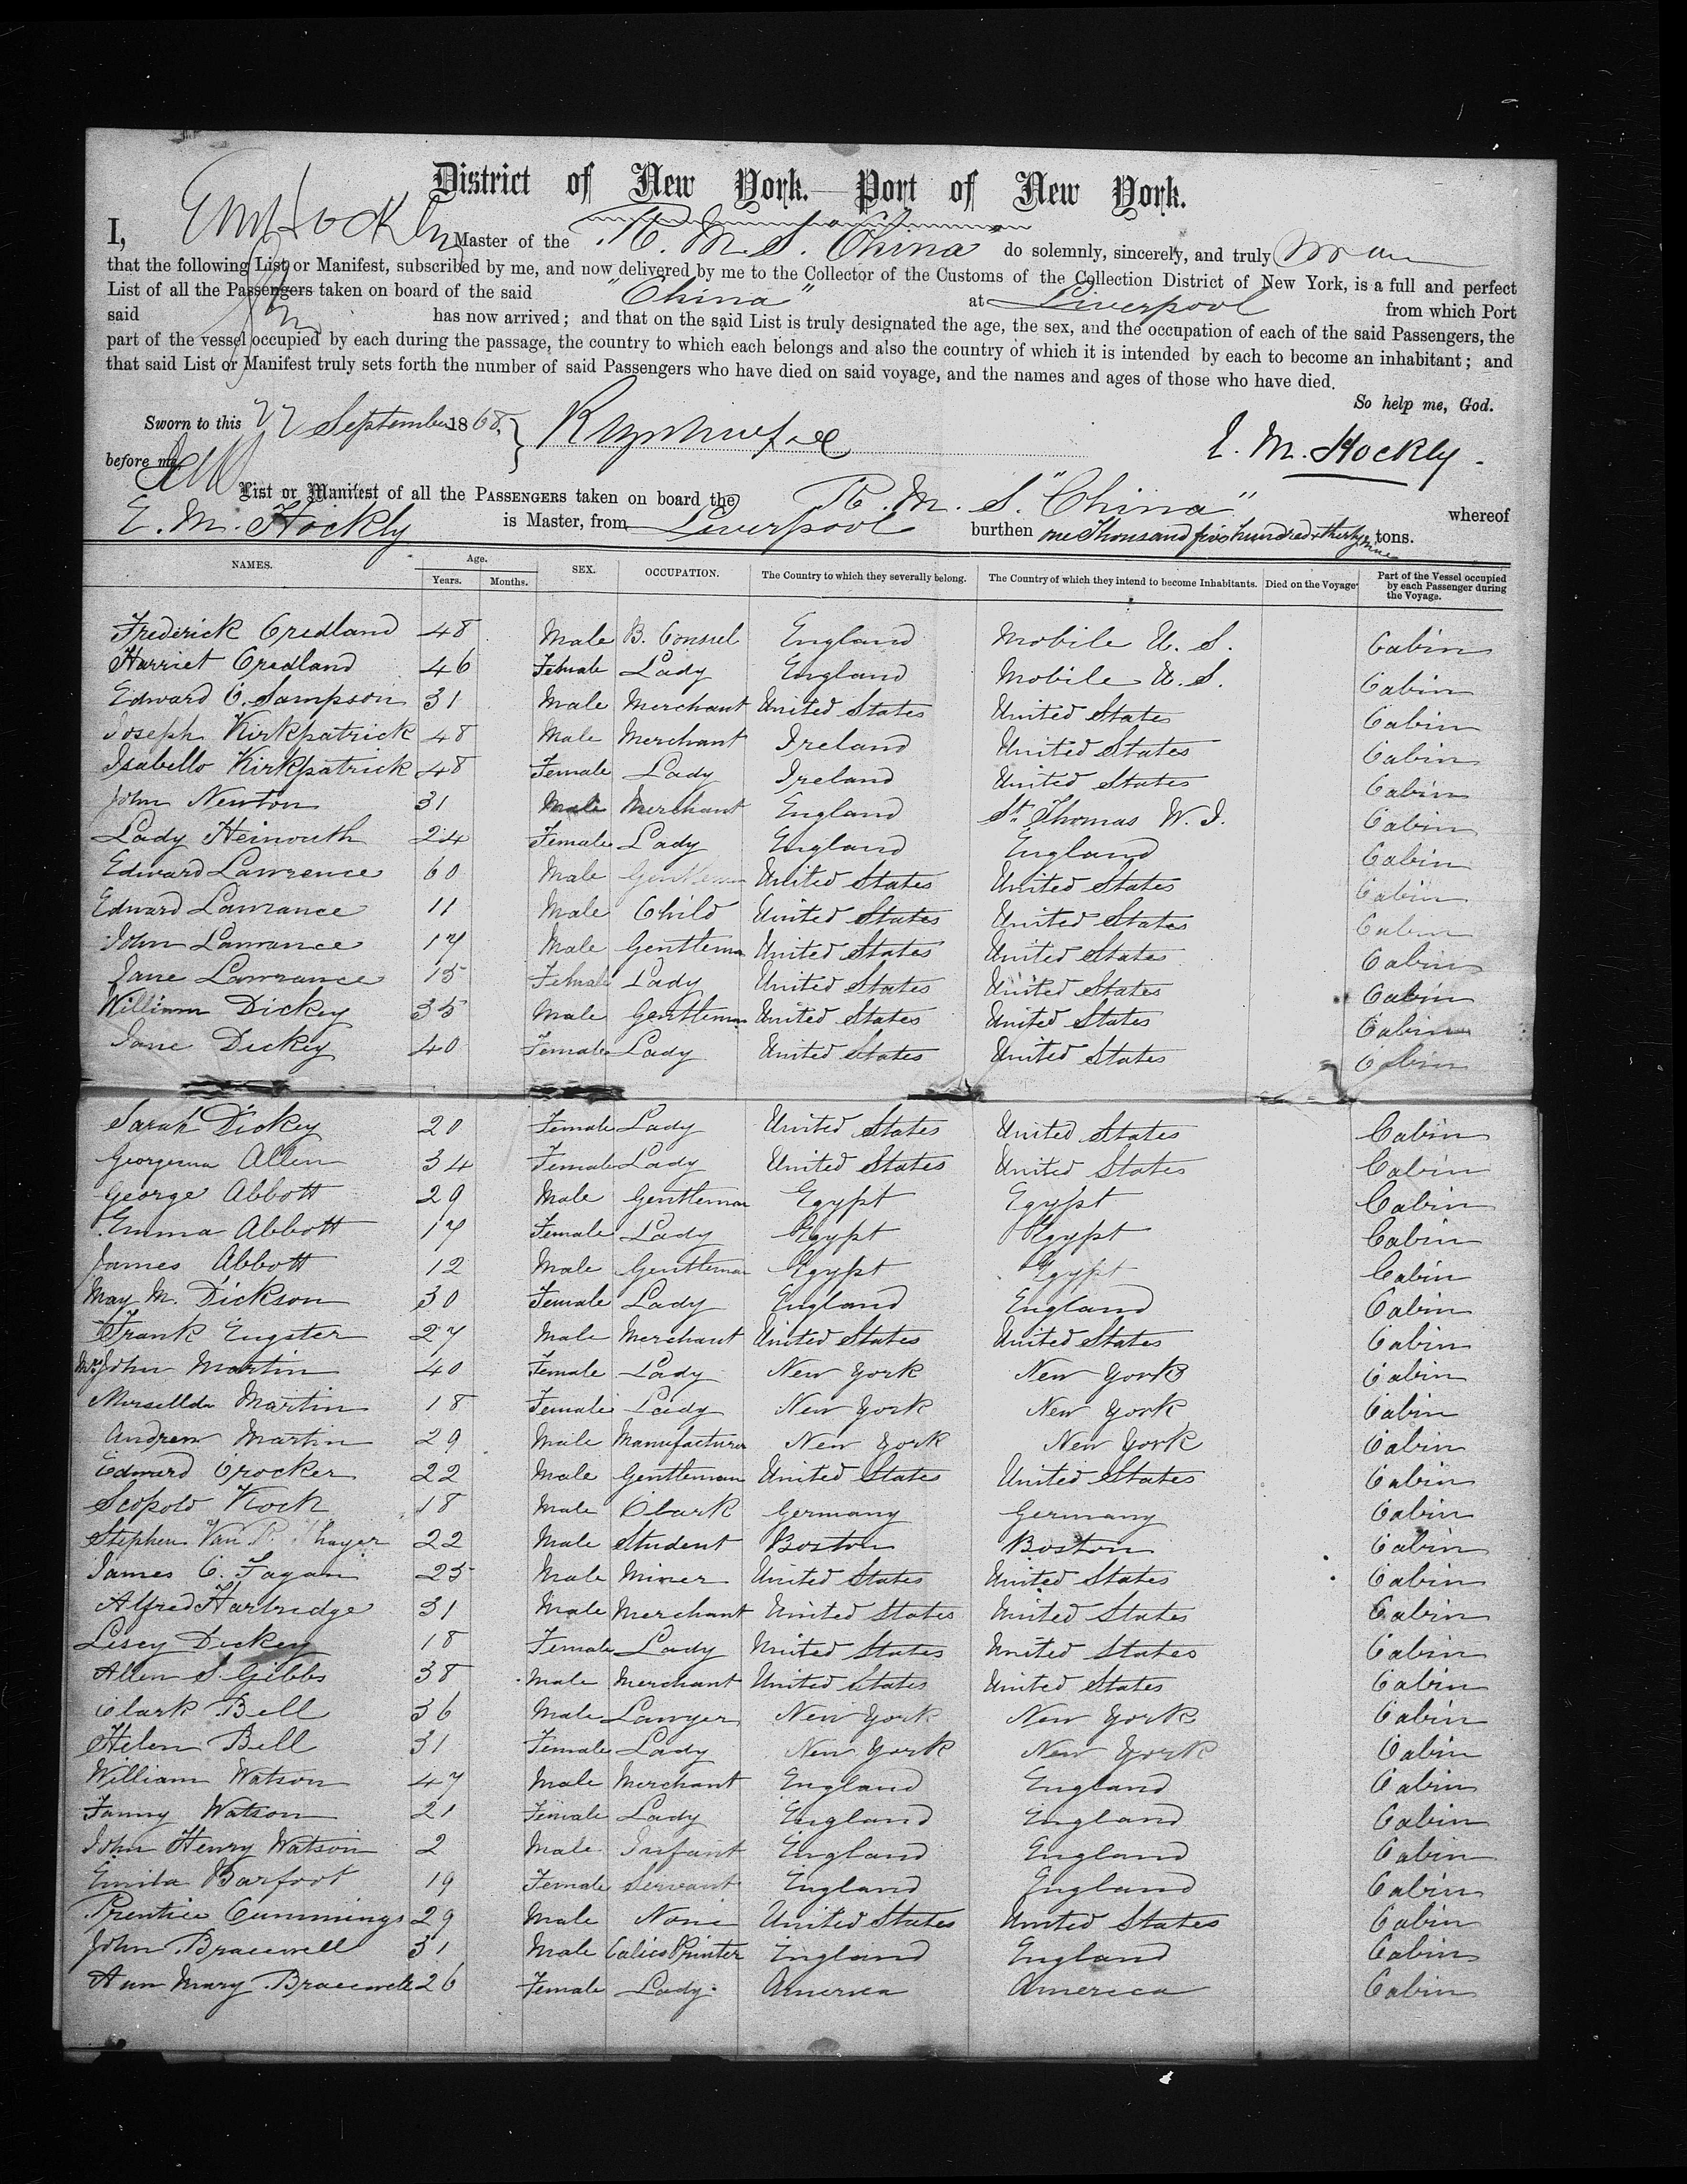 District of New York. — Port of New York.
I, E M Hockly Master of the R. M. S. China do solemnly, sincerely, and truly swear
that the following List or Manifest, subscribed by me, and now delivered by me to the Collector of the Customs of the Collection District of New York, is a full and perfect
List of all the Passengers taken on board of the said "China" at Liverpool from which Port
said has now arrived; and that on the said List is truly designated the age, the sex, and the occupation of each of the said Passengers, the
part of the vessel occupied by each during the passage, the country to which each belongs and also the country of which it is intended by each to become an inhabitant; and
that said List or Manifest truly sets forth the number of said Passengers who have died on said voyage, and the names and ages of those who have died.
So help me, God.
Sworn to this 22 September 1868.
E. M. Hockly.
before me
List or Manifest of all the PASSENGERS taken on board the R. M. S. "China" whereof
E. M. Hockly is Master, from Liverpool burthen one Thousand five hundred & thirty nine tons.
NAMES. Age. Years. Months. SEX. OCCUPATION. The Country to which they severally belong. The Country of which they intend to become Inhabitants. Died on the Voyage. Part of the Vessel occupied by each Passenger during the Voyage.
Frederick Credland 48 Male B. Consul England Mobile U. S. Cabin
Harriet Credland 46 Female Lady England Mobile U. S. Cabin
Edward C. Sampson 31 Male Merchant United States United States Cabin
Joseph Kirkpatrick 48 Male Merchant Ireland United States Cabin
Isabello Kirkpatrick 48 Female Lady Ireland United States Cabin
John Newton 31 Male Merchant England St. Thomas W. I. Cabin
Lady Heinouth 24 Female Lady England England Cabin
Edward Lawrence 60 Male Gentleman United States United States Cabin
Edward Lawrance 11 Male Child United States United States Cabin
John Lawrance 17 Male Gentleman United States United States Cabin
Jane Lawrance 15 Female Lady United States United States Cabin
William Dickey 35 Male Gentleman United States United States Cabin
Jane Dickey 40 Female Lady United States United States Cabin
Sarah Dickey 20 Female Lady United States United States Cabin
Georgeina Allen 34 Female Lady United States United States Cabin
George Abbott 29 Male Gentleman Egypt Egypt Cabin
Emma Abbott 17 Female Lady Egypt Egypt Cabin
James Abbott 12 Male Gentleman Egypt Egypt Cabin
May M. Dickson 30 Female Lady England England Cabin
Frank Eugster 27 Male Merchant United States United States Cabin
Mrs John Martin 40 Female Lady New York New York Cabin
Mursellda Martin 18 Female Lady New York New York Cabin
Andrew Martin 29 Male Manufacturer New York New York Cabin
Edward Crocker 22 Male Gentleman United States United States Cabin
Leopold Koch 18 Male Clark Germany Germany Cabin
Stephen Van R. Thayer 22 Male Student Boston Boston Cabin
James C. Fagan 25 Male Miner United States United States Cabin
Alfred Hartridge 31 Male Merchant United States United States Cabin
Lisey Dickey 18 Female Lady United States United States Cabin
Allen S. Gibbs 38 Male Merchant United States United States Cabin
Clark Bell 36 Male Lawyer New York New York Cabin
Helen Bell 31 Female Lady New York New York Cabin
William Watson 47 Male Merchant England England Cabin
Fanny Watson 21 Female Lady England England Cabin
John Henry Watson 2 Male Infant England England Cabin
Emila Barfoot 19 Female Servant England England Cabin
Prentice Cummings 29 Male None United States United States Cabin
John Bracewell 31 Male Calico Printer England England Cabin
Ann Mary Bracewell 26 Female Lady America America Cabin